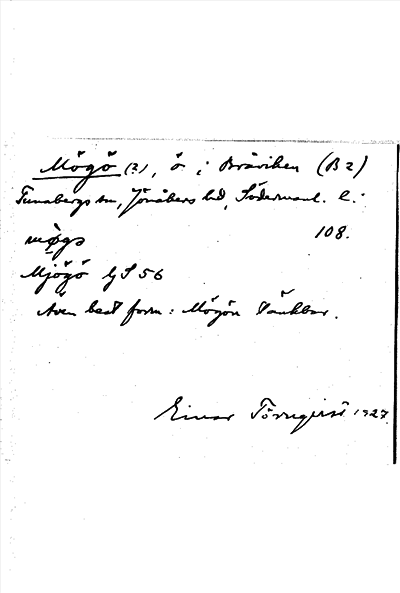 Mögö (?), ö i Bråviken (B 2)
Tunabergs sn, Jönåkers hd, Södermanl. l.
møgə 108.
Mjögö GS 56
Även best form: Mögön tänkbar.
Einar Törnqvist 1927.